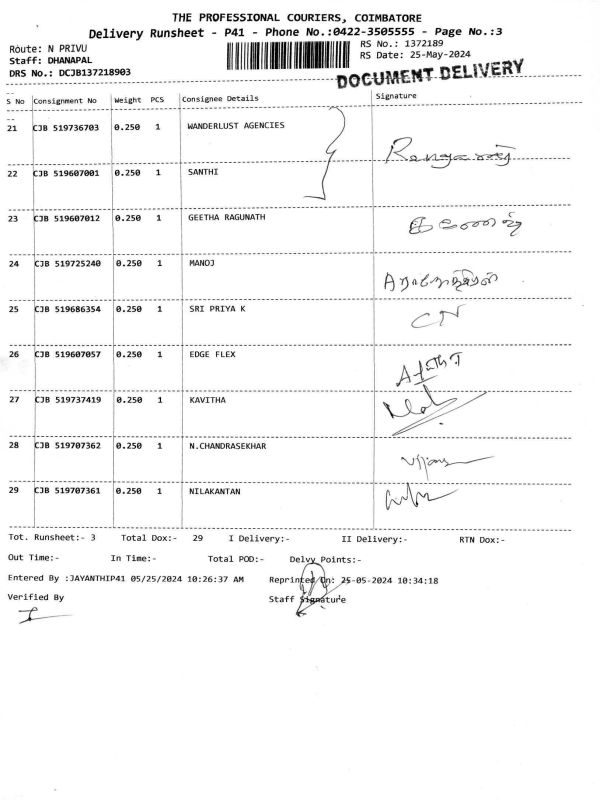 THE PROFESSIONAL COURIERS, COIMBATORE
Delivery Runsheet - P41 - Phone No.:0422-3505555 - Page No.:3
Route: N PRIVU
RS No.: 1372189
Staff: DHANAPAL
RS Date: 25-May-2024
DRS No.: DCJB137218903
DOCUMENT DELIVERY
S No Consignment No Weight PCS Consignee Details Signature
21 CJB 519736703 0.250 1 WANDERLUST AGENCIES
22 CJB 519607001 0.250 1 SANTHI
23 CJB 519607012 0.250 1 GEETHA RAGUNATH
24 CJB 519725240 0.250 1 MANOJ
25 CJB 519686354 0.250 1 SRI PRIYA K
CN
26 CJB 519607057 0.250 1 EDGE FLEX
27 CJB 519737419 0.250 1 KAVITHA
28 CJB 519707362 0.250 1 N.CHANDRASEKHAR
29 CJB 519707361 0.250 1 NILAKANTAN
Tot. Runsheet:- 3 Total Dox:- 29 I Delivery:- II Delivery:- RTN Dox:-
Out Time:- In Time:- Total POD:- Delvy Points:-
Entered By :JAYANTHIP41 05/25/2024 10:26:37 AM Reprinted On: 25-05-2024 10:34:18
Verified By Staff Signature